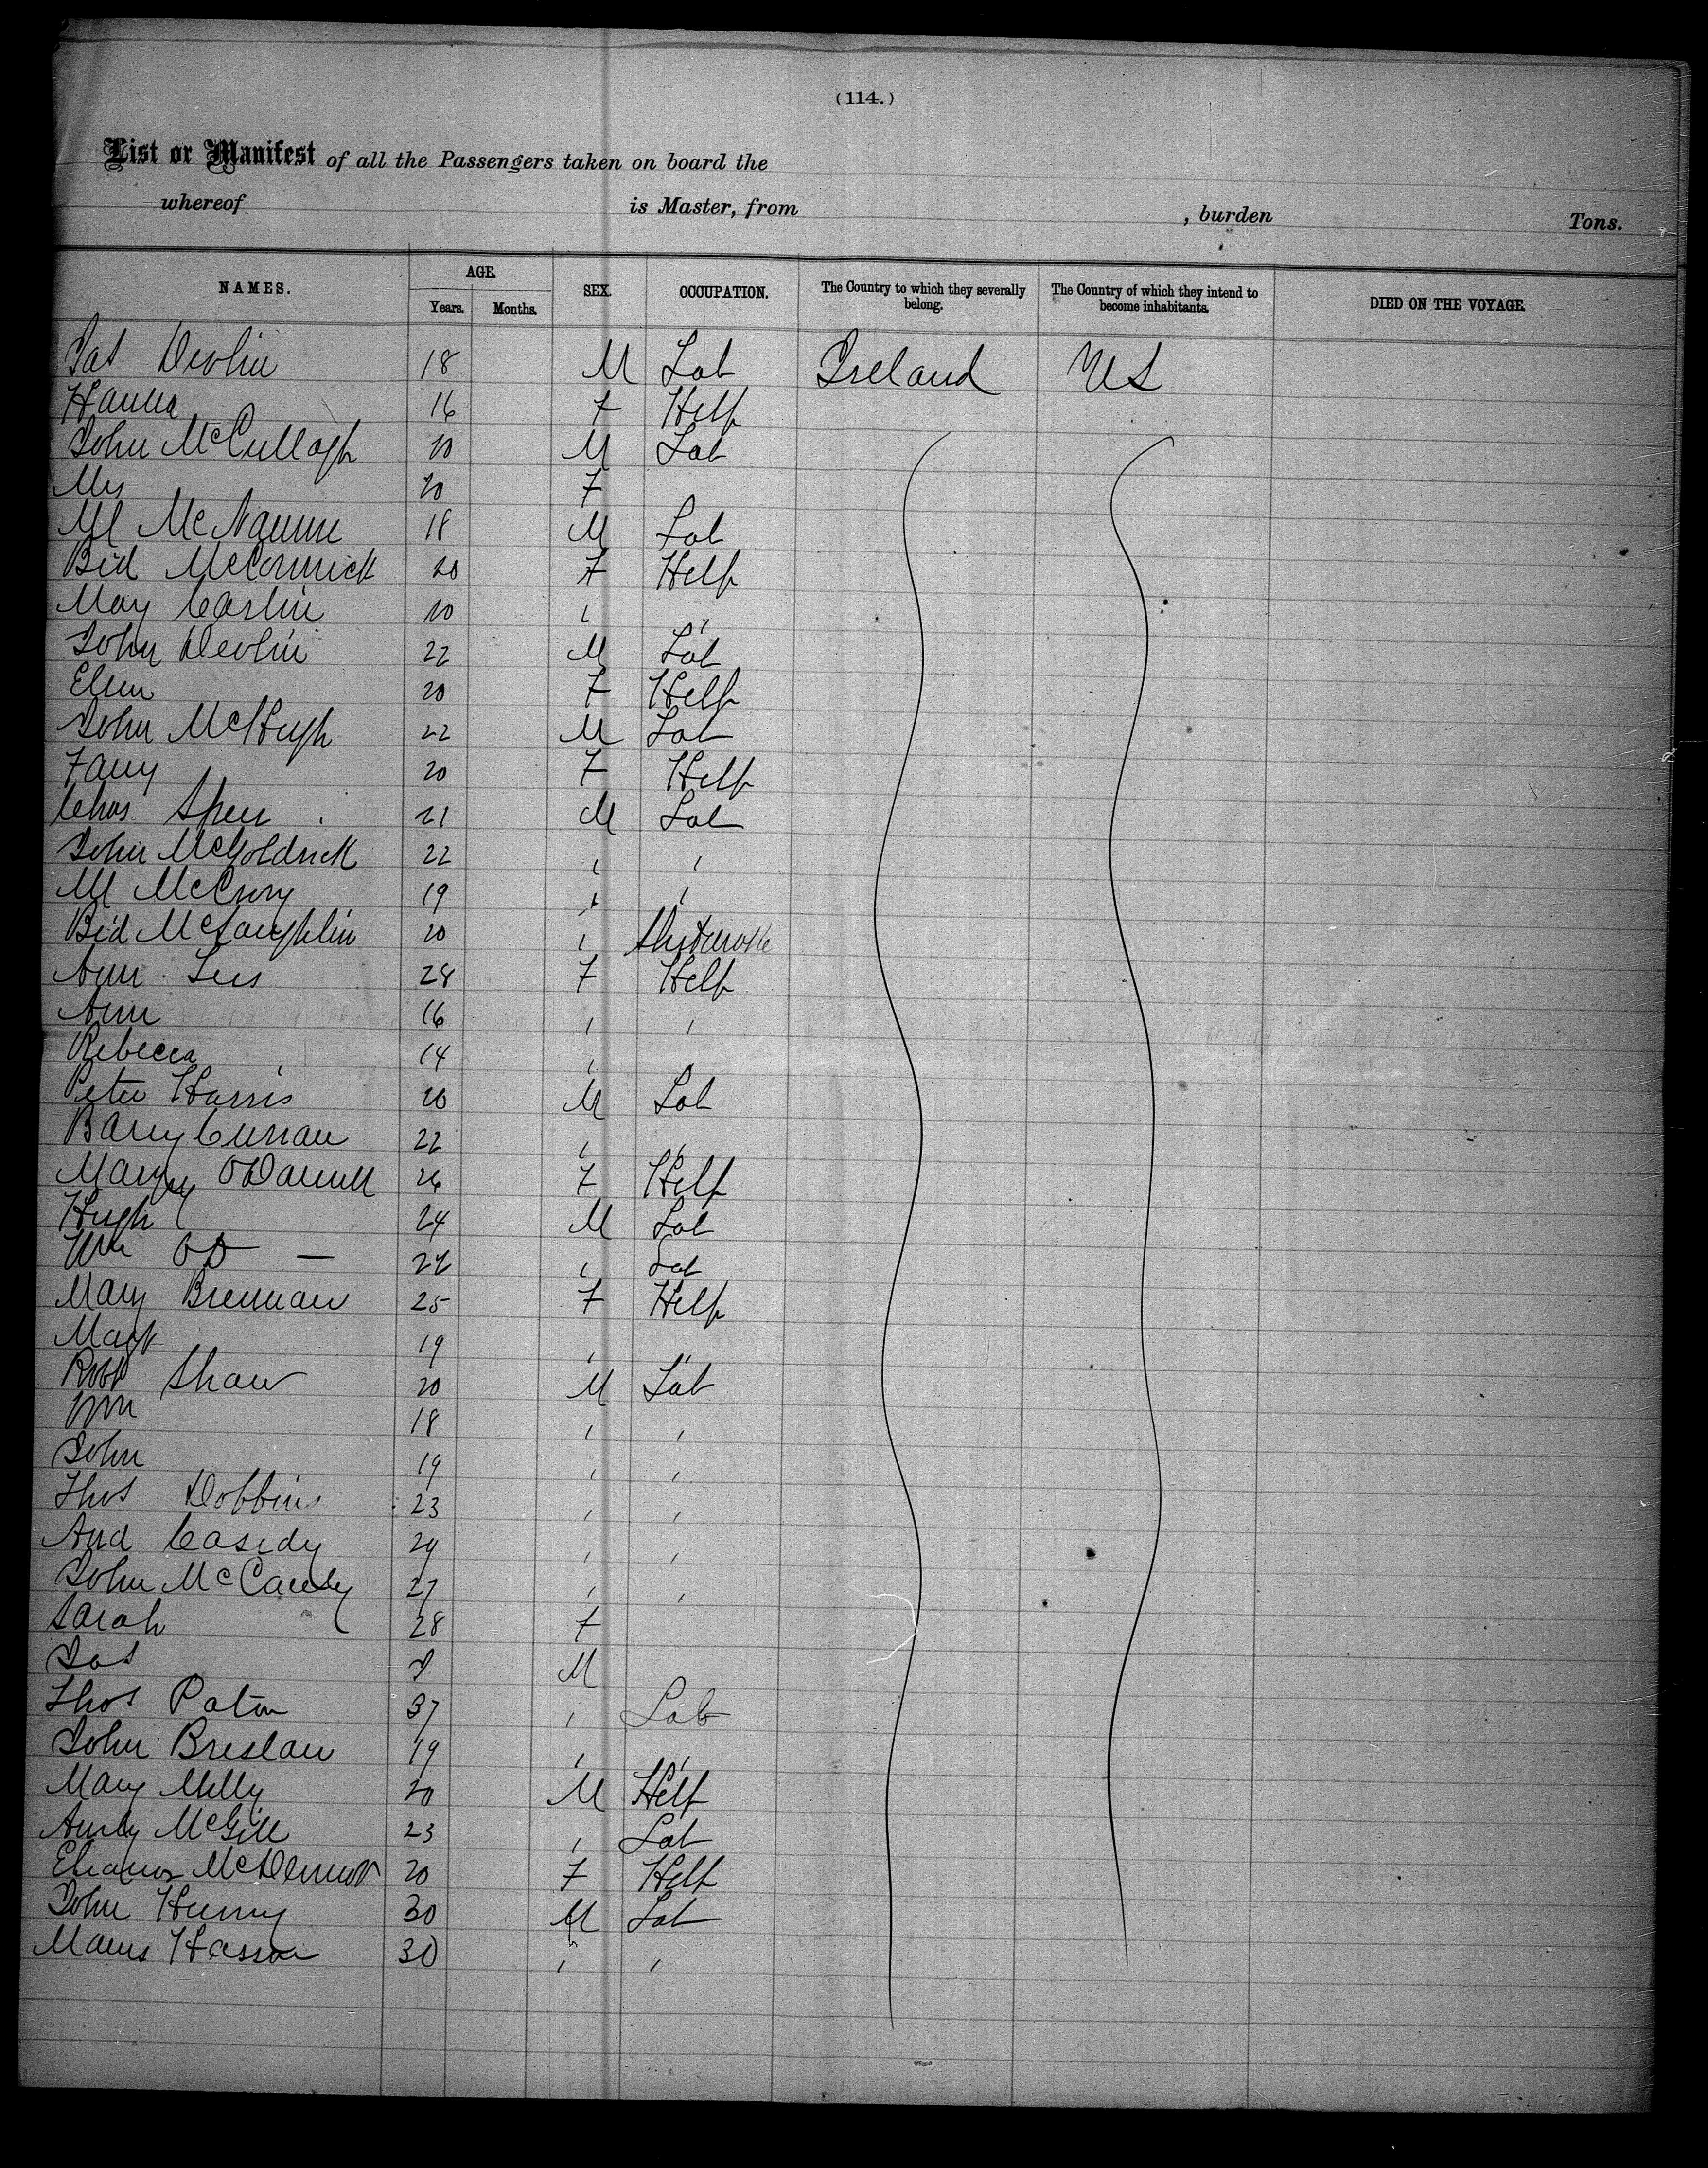 (114.)
List or Manifest of all the Passengers taken on board the
whereof is Master, from , burden Tons.
NAMES. AGE. SEX. OCCUPATION. The Country to which they severally belong. The Country of which they intend to become inhabitants. DIED ON THE VOYAGE.
Years. Months.
Devlin 18 M Lab Ireland US
Hanna 16 F Help
John McCullagh M Lab
20 F
Ml 18 M Lab
Bid McCormick 20 F Help
May Carlin "
John Devlin 22 M Lab
Ellen 20 F Help
John McHugh 22 M Lab
Fanny 20 F Help
Chas 21 M Lab
John McGoldrick 22 " "
Ml McCrory 19 " "
Bid McLaughlin 20 "
Ann Lees 28 F Help
Ann 16 " "
Rebecca 14 "
Peter Harris 20 M Lab
Barny Curran 22 " "
O'Donnell 26 F Help
Hugh 24 M Lab
Wm O'D — " Lab
Mary Brennan 25 F Help
19 " "
Robt Shaw 20 M Lab
Wm 18 " "
John 19 " "
Thos Dobbins 23 " "
And Casidy " "
John McCauly 27 " "
Sarah 28 F
M
Thos Paton 37 " Lab
John Breslan 19 " "
Mary 20 M Help
McGill 23 " Lab
Eleanor McDermott 20 F Help
John 30 M Lab
Hasson 30 " "